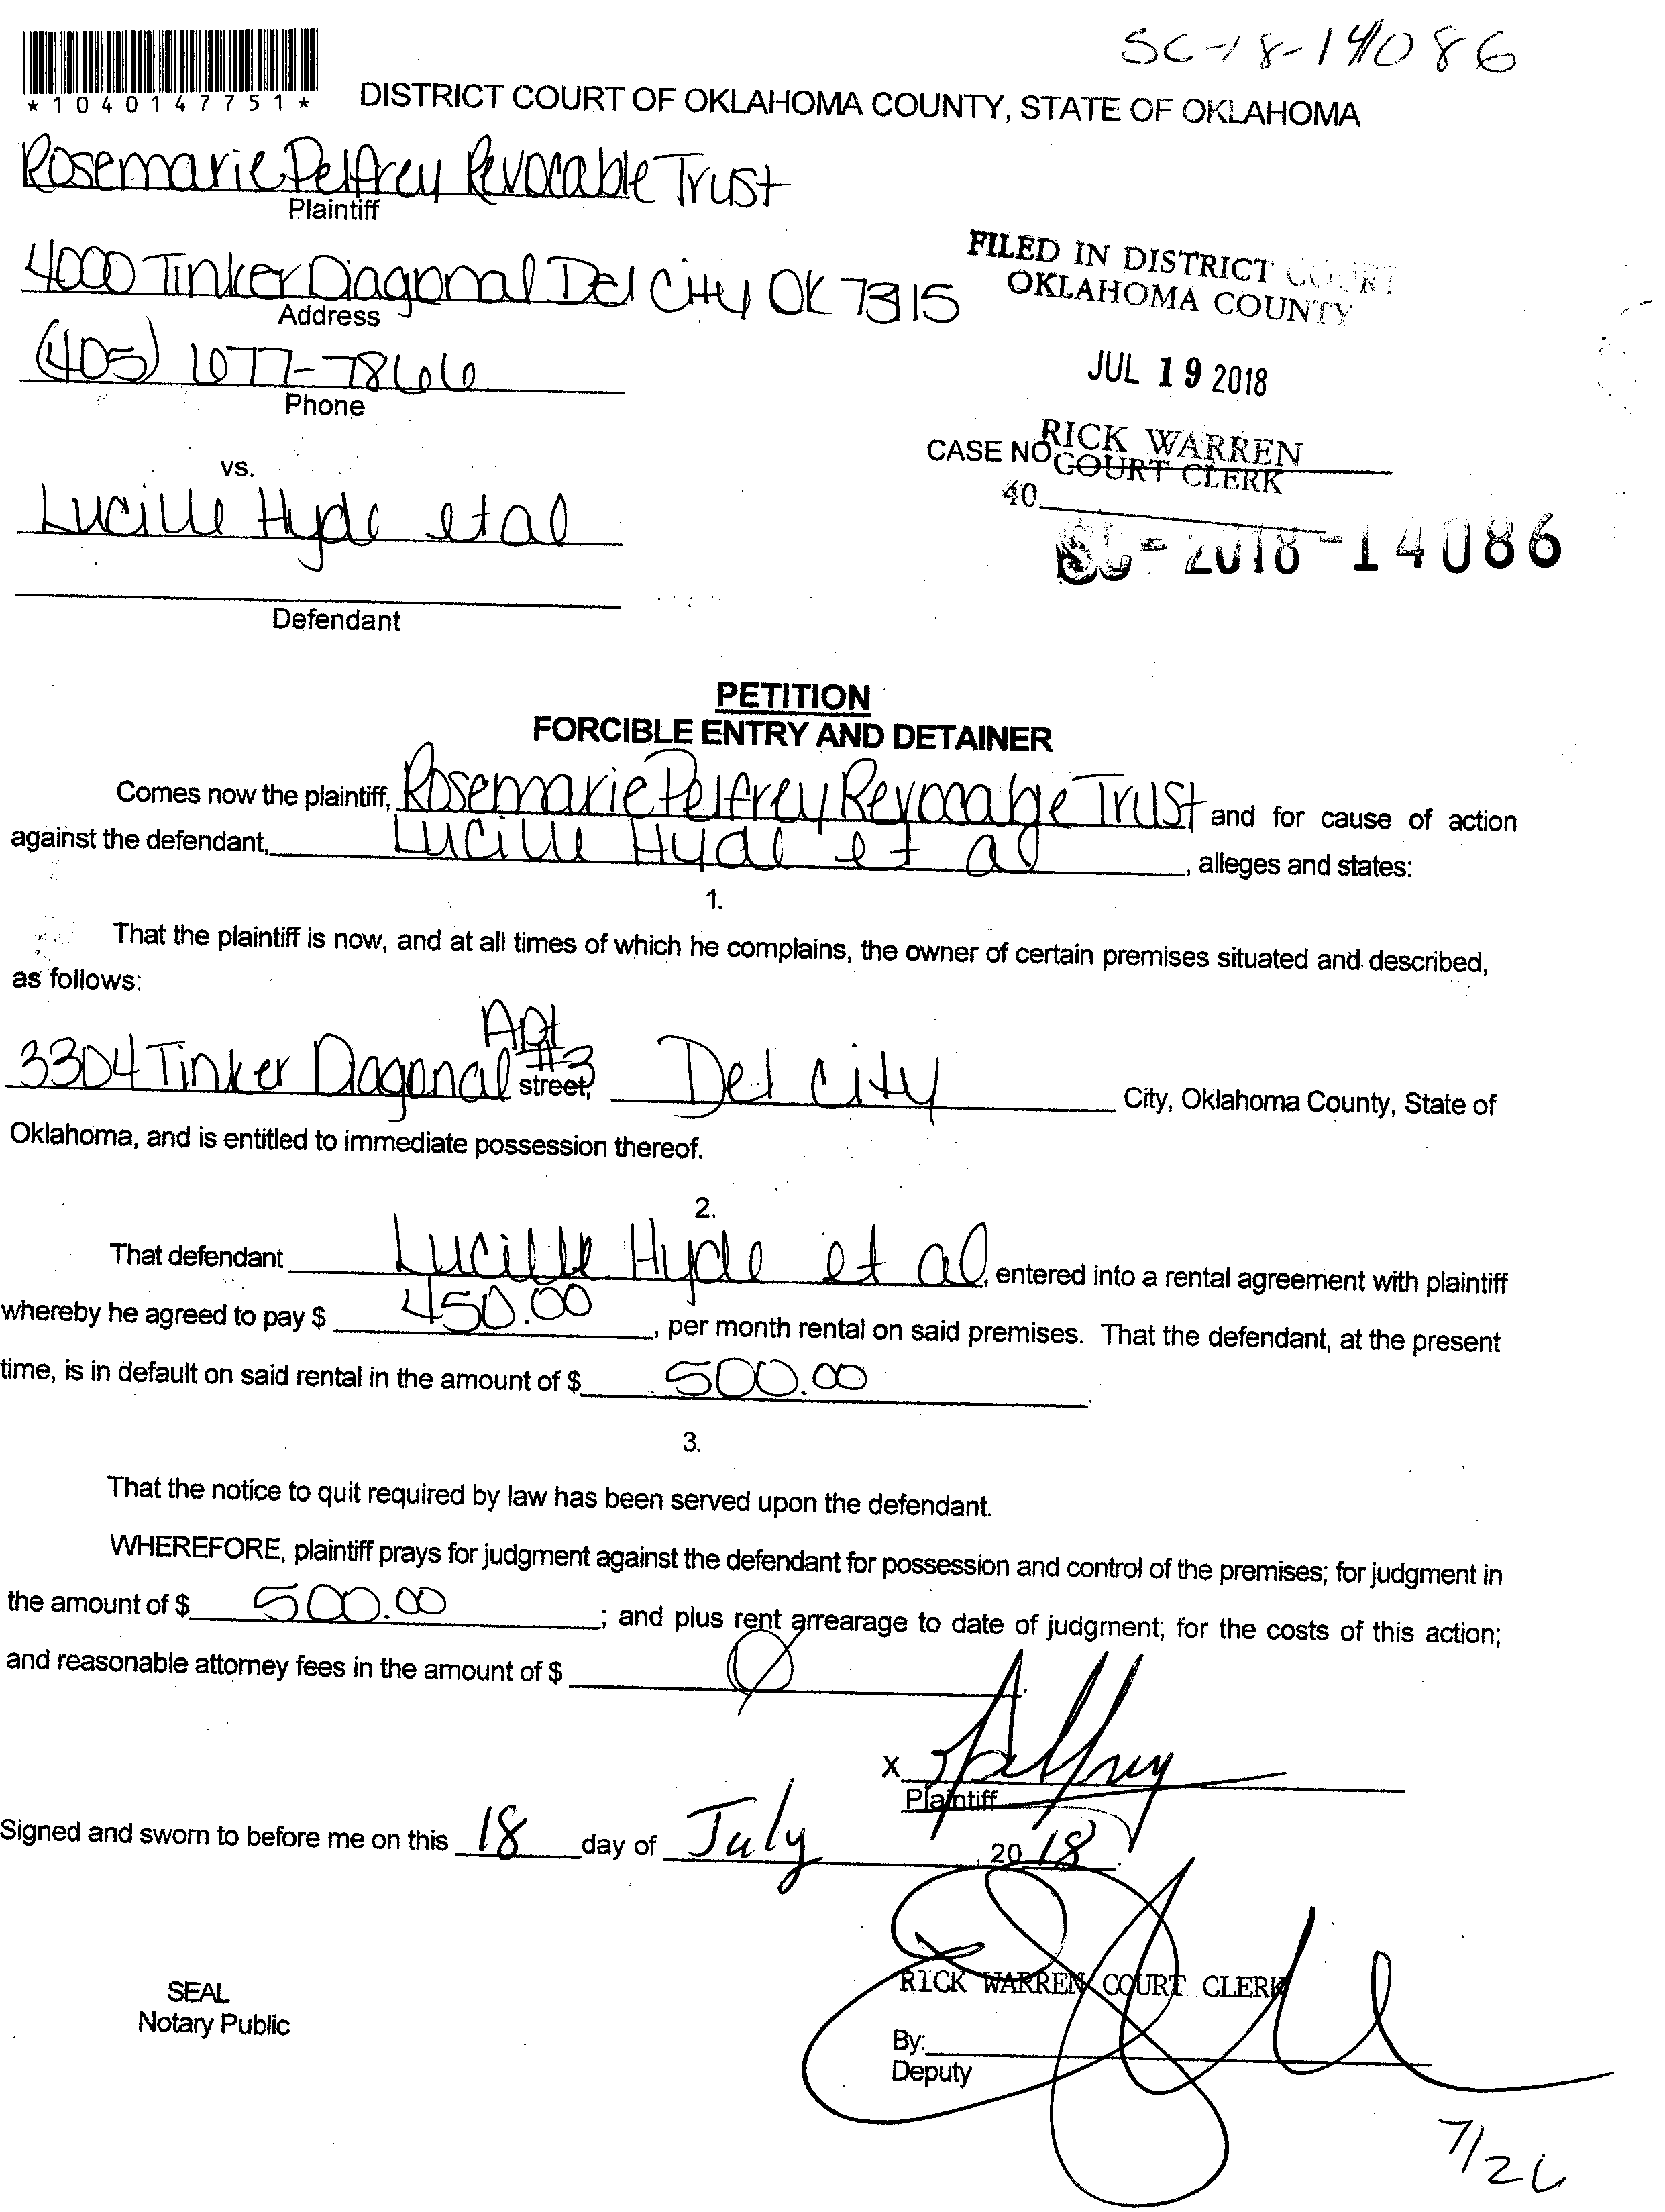 SC-18-14086
*1040147751*
DISTRICT COURT OF OKLAHOMA COUNTY, STATE OF OKLAHOMA
Rosemarie Pelfrey Revocable Trust
Plaintiff
4000 Tinker Diagonal Del City OK 7315
Address
FILED IN DISTRICT COURT
OKLAHOMA COUNTY
(405) 677-7866
Phone
JUL 19 2018
RICK WARREN
CASE NO
COURT CLERK
40
vs.
Lucille Hyde et al
SC-2018-14086
Defendant
PETITION
FORCIBLE ENTRY AND DETAINER
Comes now the plaintiff, Rosemarie Pelfrey Revocable Trust and for cause of action
against the defendant, Lucille Hyde et al, alleges and states:
1.
That the plaintiff is now, and at all times of which he complains, the owner of certain premises situated and described,
as follows:
Apt
3304 Tinker Diagonal #3 street, Del City City, Oklahoma County, State of
Oklahoma, and is entitled to immediate possession thereof.
2.
That defendant Lucille Hyde et al, entered into a rental agreement with plaintiff
whereby he agreed to pay $ 450.00, per month rental on said premises. That the defendant, at the present
time, is in default on said rental in the amount of $ 500.00.
3.
That the notice to quit required by law has been served upon the defendant.
WHEREFORE, plaintiff prays for judgment against the defendant for possession and control of the premises; for judgment in
the amount of $ 500.00; and plus rent arrearage to date of judgment; for the costs of this action;
and reasonable attorney fees in the amount of $ Ø.
X Pelfrey
Plaintiff
Signed and sworn to before me on this 18 day of July, 2018.
RICK WARREN COURT CLERK
SEAL
Notary Public
By:
Deputy
7/26